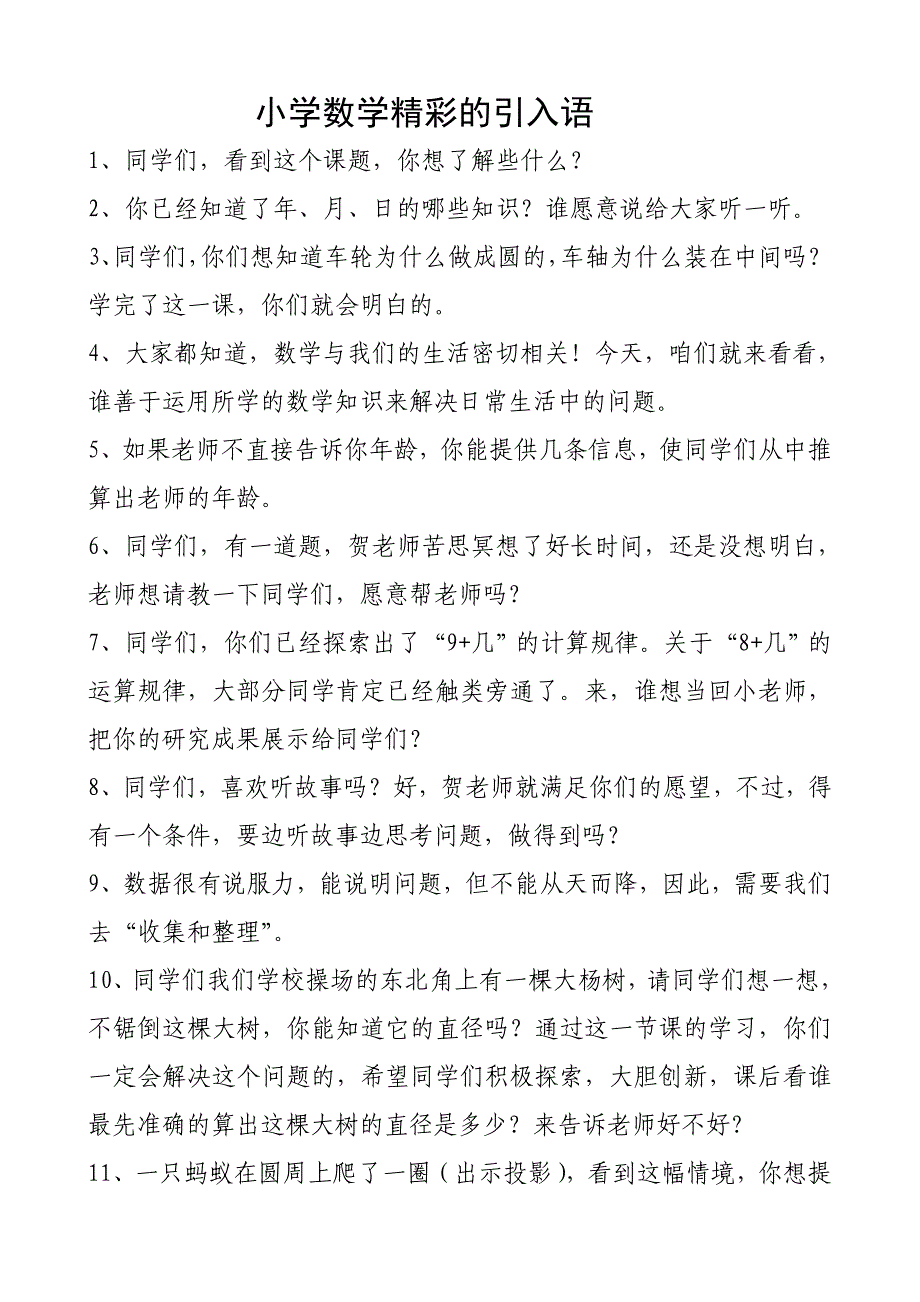 小学数学精彩的引入语
1、同学们，看到这个课题，你想了解些什么？
2、你已经知道了年、月、日的哪些知识？谁愿意说给大家听一听。
3、同学们，你们想知道车轮为什么做成圆的，车轴为什么装在中间吗？
学完了这一课，你们就会明白的。
4、大家都知道，数学与我们的生活密切相关！今天，咱们就来看看，
谁善于运用所学的数学知识来解决日常生活中的问题。
5、如果老师不直接告诉你年龄，你能提供几条信息，使同学们从中推
算出老师的年龄。
6、同学们，有一道题，贺老师苦思冥想了好长时间，还是没想明白，
老师想请教一下同学们，愿意帮老师吗？
7、同学们，你们已经探索出了“9+几”的计算规律。关于“8+几”的
运算规律，大部分同学肯定已经触类旁通了。来，谁想当回小老师，
把你的研究成果展示给同学们？
8、同学们，喜欢听故事吗？好，贺老师就满足你们的愿望，不过，得
有一个条件，要边听故事边思考问题，做得到吗？
9、数据很有说服力，能说明问题，但不能从天而降，因此，需要我们
去“收集和整理”。
10、同学们我们学校操场的东北角上有一棵大杨树，请同学们想一想，
不锯倒这棵大树，你能知道它的直径吗？通过这一节课的学习，你们
一定会解决这个问题的，希望同学们积极探索，大胆创新，课后看谁
最先准确的算出这棵大树的直径是多少？来告诉老师好不好？
11、一只蚂蚁在圆周上爬了一圈（出示投影），看到这幅情境，你想提